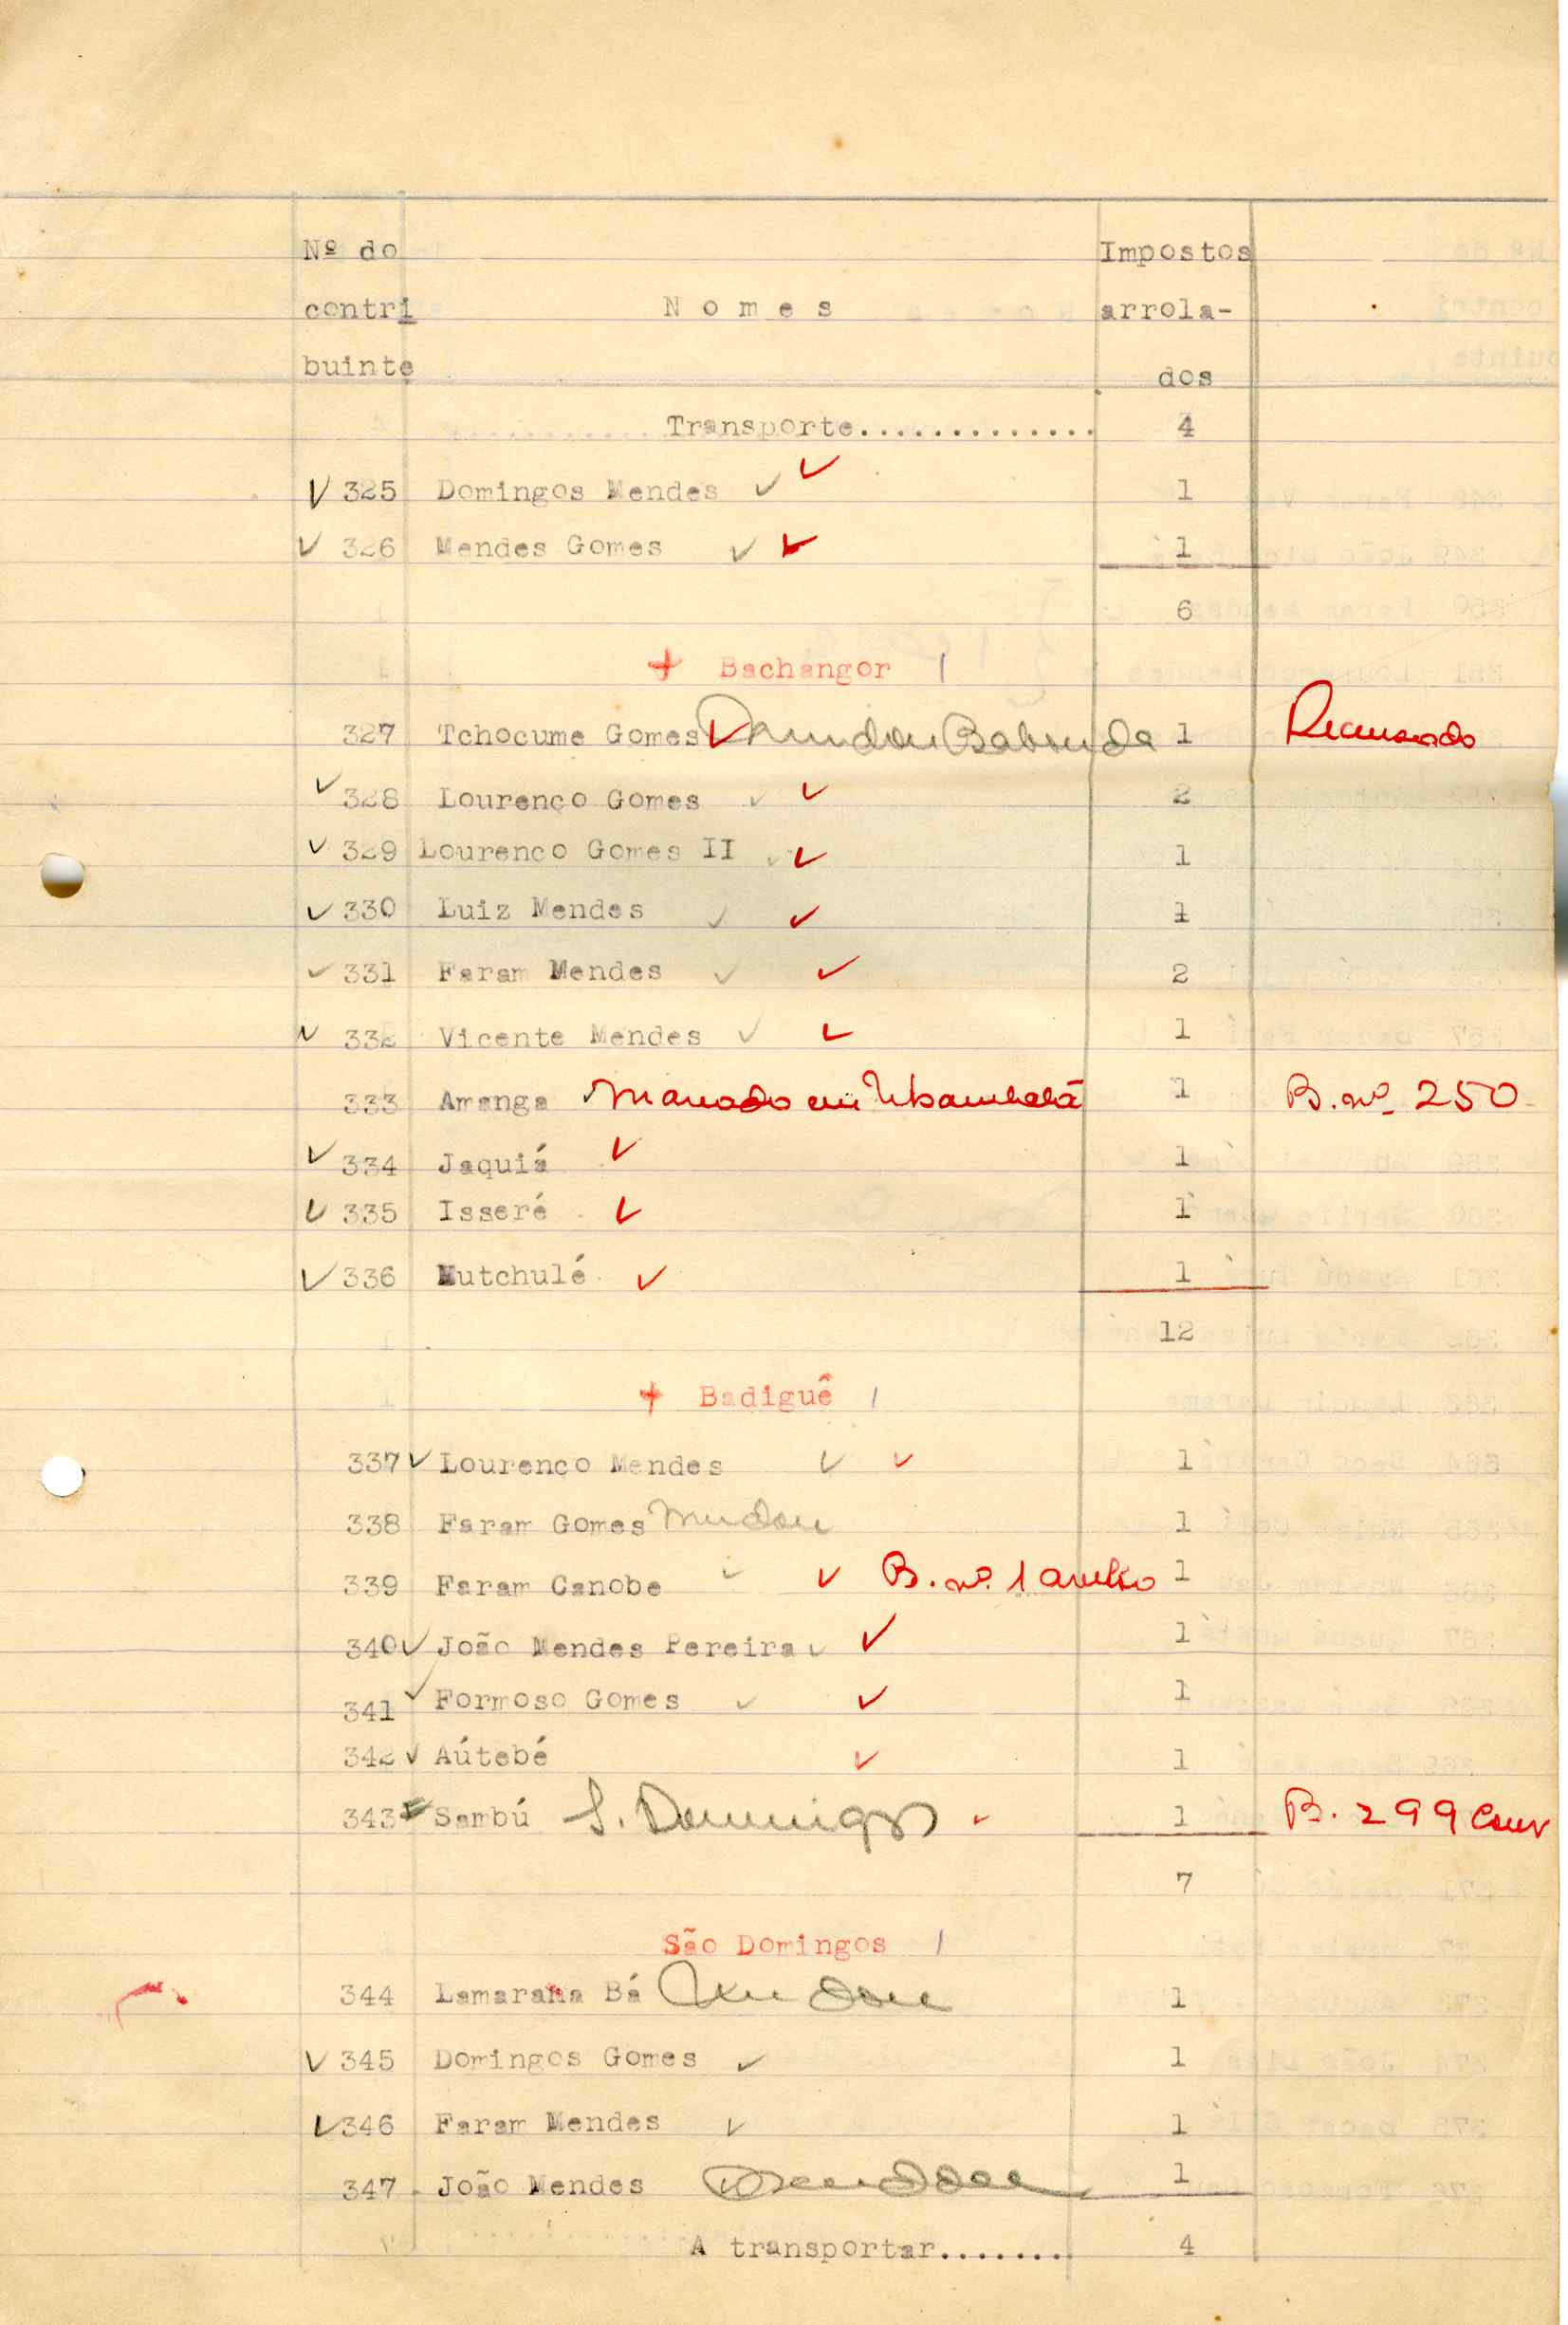 Nº do Impostos
contri N o m e s arrola-
buinte dos
Transporte............. 4
325 Domingos Mendes 1
326 Mendes Gomes 1
6
+ Bachangor
327 Tchocume Gomes Mudou 1 Recensado
328 Lourenço Gomes 2
329 Lourenço Gomes II 1
330 Luiz Mendes 1
331 Faram Mendes 2
332 Vicente Mendes 1
333 Amanga em 1 B. nº 250
334 Jaquiá 1
335 Isseré 1
336 Mutchulé 1
12
+ Badiguê
337 Lourenço Mendes 1
338 Faram Gomes Mudou 1
339 Faram Canobe B. nº 1 1
340 João Mendes Pereira 1
341 Formoso Gomes 1
342 Aútebé 1
343 Sambú S. Domingos 1 B. 299
7
São Domingos
344 Lamarana Bá Mudou 1
345 Domingos Gomes 1
346 Faram Mendes 1
347 João Mendes Mudou 1
A transportar....... 4